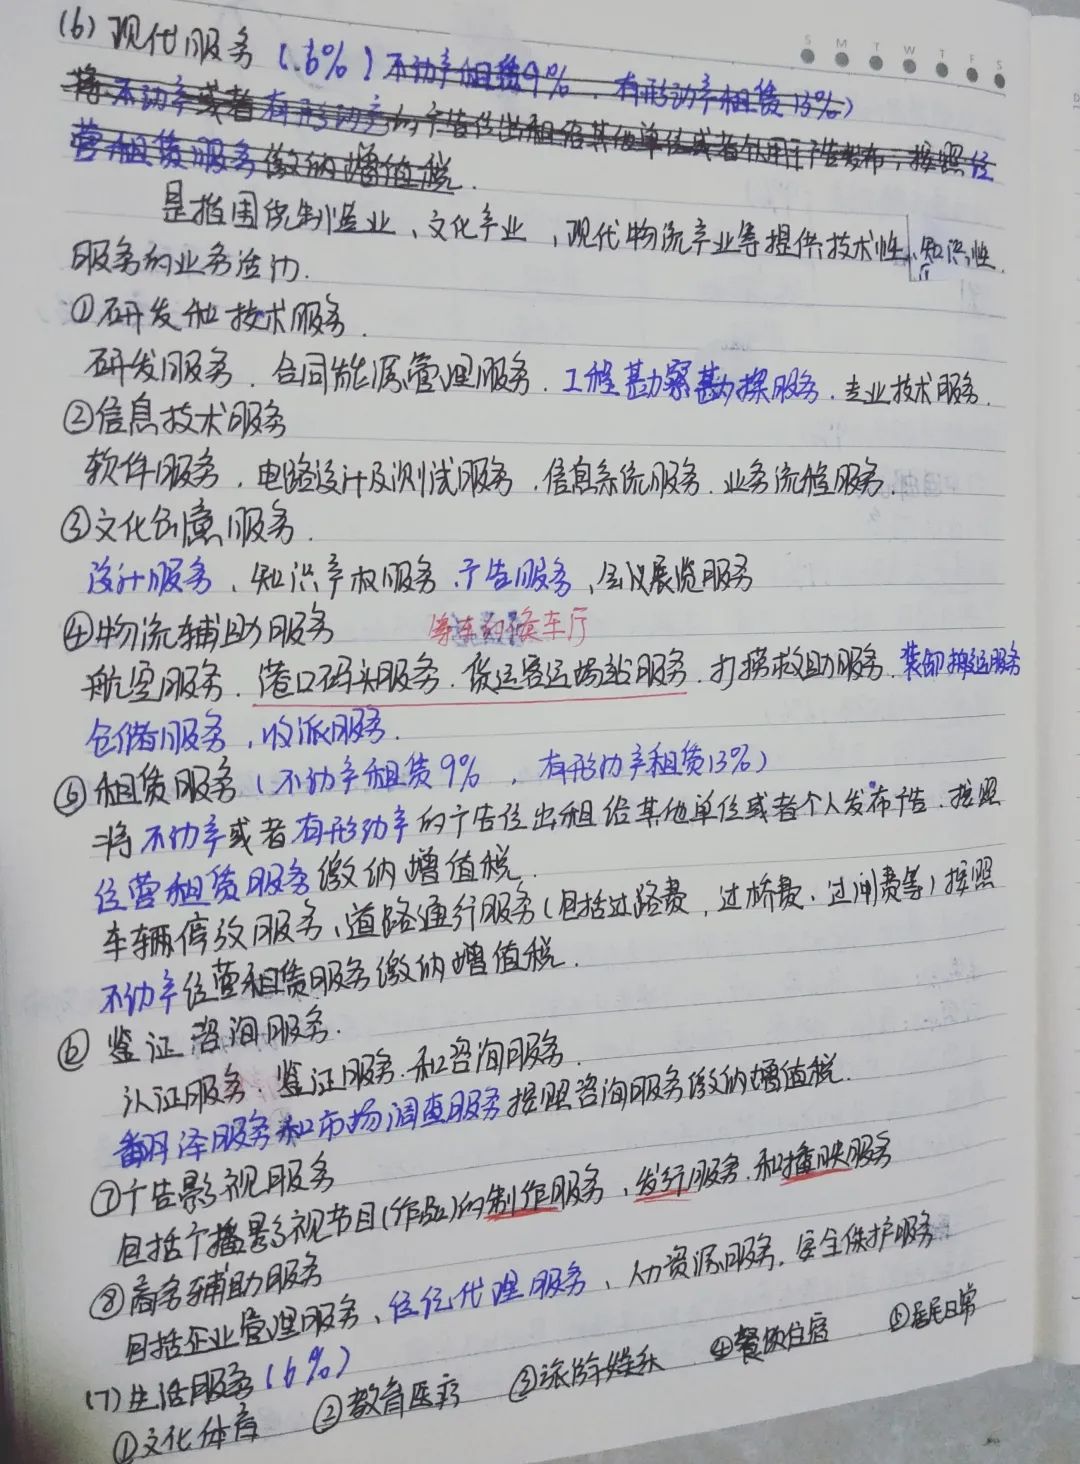 S M T W T F S
(6) 现代服务 (6%) 不动产租赁9%、有形动产租赁13%)
将不动产或者有形动产的广告位出租给其他单位或者个人用于广告发布,按照经
营租赁服务缴纳增值税.
是指围绕制造业、文化产业、现代物流产业等提供技术性、知识性
服务的业务活动.
①研发和技术服务.
研发服务、合同能源管理服务、工程勘察勘探服务、专业技术服务.
②信息技术服务
软件服务、电路设计及测试服务、信息系统服务、业务流程服务.
③文化创意服务.
设计服务、知识产权服务、广告服务、会议展览服务
④物流辅助服务
候车厅
航空服务、港口码头服务、货运客运场站服务、打捞救助服务、装卸搬运服务
仓储服务、收派服务.
⑤租赁服务(不动产租赁9%、有形动产租赁13%)
将不动产或者有形动产的广告位出租给其他单位或者个人发布广告、按照
经营租赁服务缴纳增值税.
车辆停放服务、道路通行服务(包括过路费、过桥费、过闸费等)按照
不动产经营租赁服务缴纳增值税.
⑥鉴证咨询服务.
认证服务、鉴证服务和咨询服务.
翻译服务和市场调查服务按照咨询服务缴纳增值税.
⑦广告影视服务
包括广播影视节目(作品)的制作服务、发行服务、和播映服务
⑧商务辅助服务
包括企业管理服务、经纪代理服务、人力资源服务、安全保护服务
(7)生活服务(6%)
①文化体育 ②教育医疗 ③旅游娱乐 ④餐饮住宿 ⑤居民日常